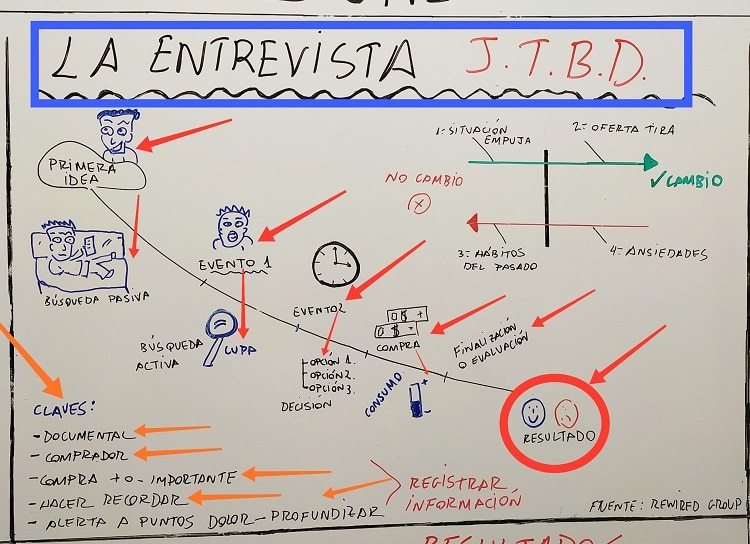 LA ENTREVISTA J.T.B.D.
PRIMERA
IDEA
BÚSQUEDA PASIVA
EVENTO 1
BÚSQUEDA
ACTIVA
LUPA
EVENTO2
OPCIÓN 1.
OPCIÓN2.
OPCIÓN3.
DECISIÓN
0 $ +
0 $ -
COMPRA
CONSUMO
+
-
FINALIZACIÓN
O EVALUACIÓN
RESULTADO
1: SITUACIÓN
EMPUJA
2: OFERTA TIRA
NO CAMBIO
✓CAMBIO
3: HÁBITOS
DEL PASADO
4: ANSIEDADES
CLAVES:
- DOCUMENTAL
- COMPRADOR
- COMPRA +o- IMPORTANTE
- HACER RECORDAR
- ALERTA A PUNTOS DOLOR - PROFUNDIZAR
REGISTRAR
INFORMACIÓN
FUENTE: REWIRED GROUP